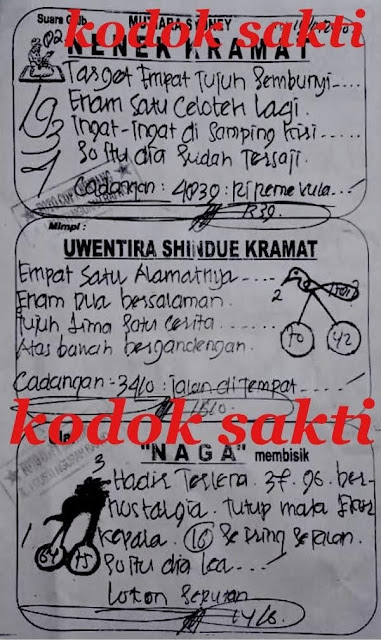 Suara Club
MUTIARA SYDNEY
kodok sakti
02
NENEK KRAMAT
Target Empat Tujuh Sembunyi....
Enam Satu Celoteh lagi
Ingat-Ingat di Samping Kiri
So Itu dia Sudah Tersaji.
Cadangan: 4030:
R30.
Mimpi:
UWENTIRA SHINDUE KRAMAT
Empat Satu Alamatnya....
Enam Dua bersalaman.
2
Tujuh Lima Satu Cerita......
70 42
Atas bawah bergandengan.
Cadangan = 3410: Jalan ditempat....
kodok sakti
"NAGA" membisik
3
Hadir Tertera. 37. 96. ber-
nostalgia. tutup mata Ekor
1
Kepala. 16 Se iring Sejalan.
64 15
So itu dia Lea....
Loton Seputan